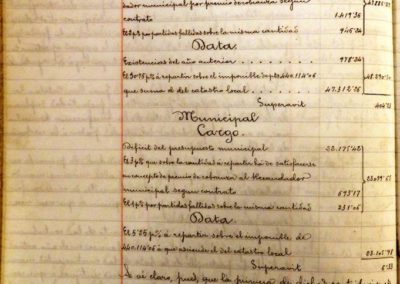 dador municipal por premio de cobranza segun
contrato 1.419'36
El 2 p% por partidas fallidas sobre la misma cantidad 946'24
Data.
Existencias del año anterior 978'34
El p% á repartir sobre el imponible de ptas 240.114'06
que suma el del catastro local 47.312'26
Superavit
Municipal
Cargo.
Deficit del presupuesto municipal 22.175'42
El 3 p% que sobre la cantidad á repartir ha de satisfacerse
en concepto de premio de cobranza al Recaudador
municipal segun contrato 693'17
El 1 p% por partidas fallidas sobre la misma cantidad 231'06
Data
El p% á repartir sobre el imponible de
240.114'06 á que asciende el del catastro local
Superavit
claro, pues, que la primera de dichas